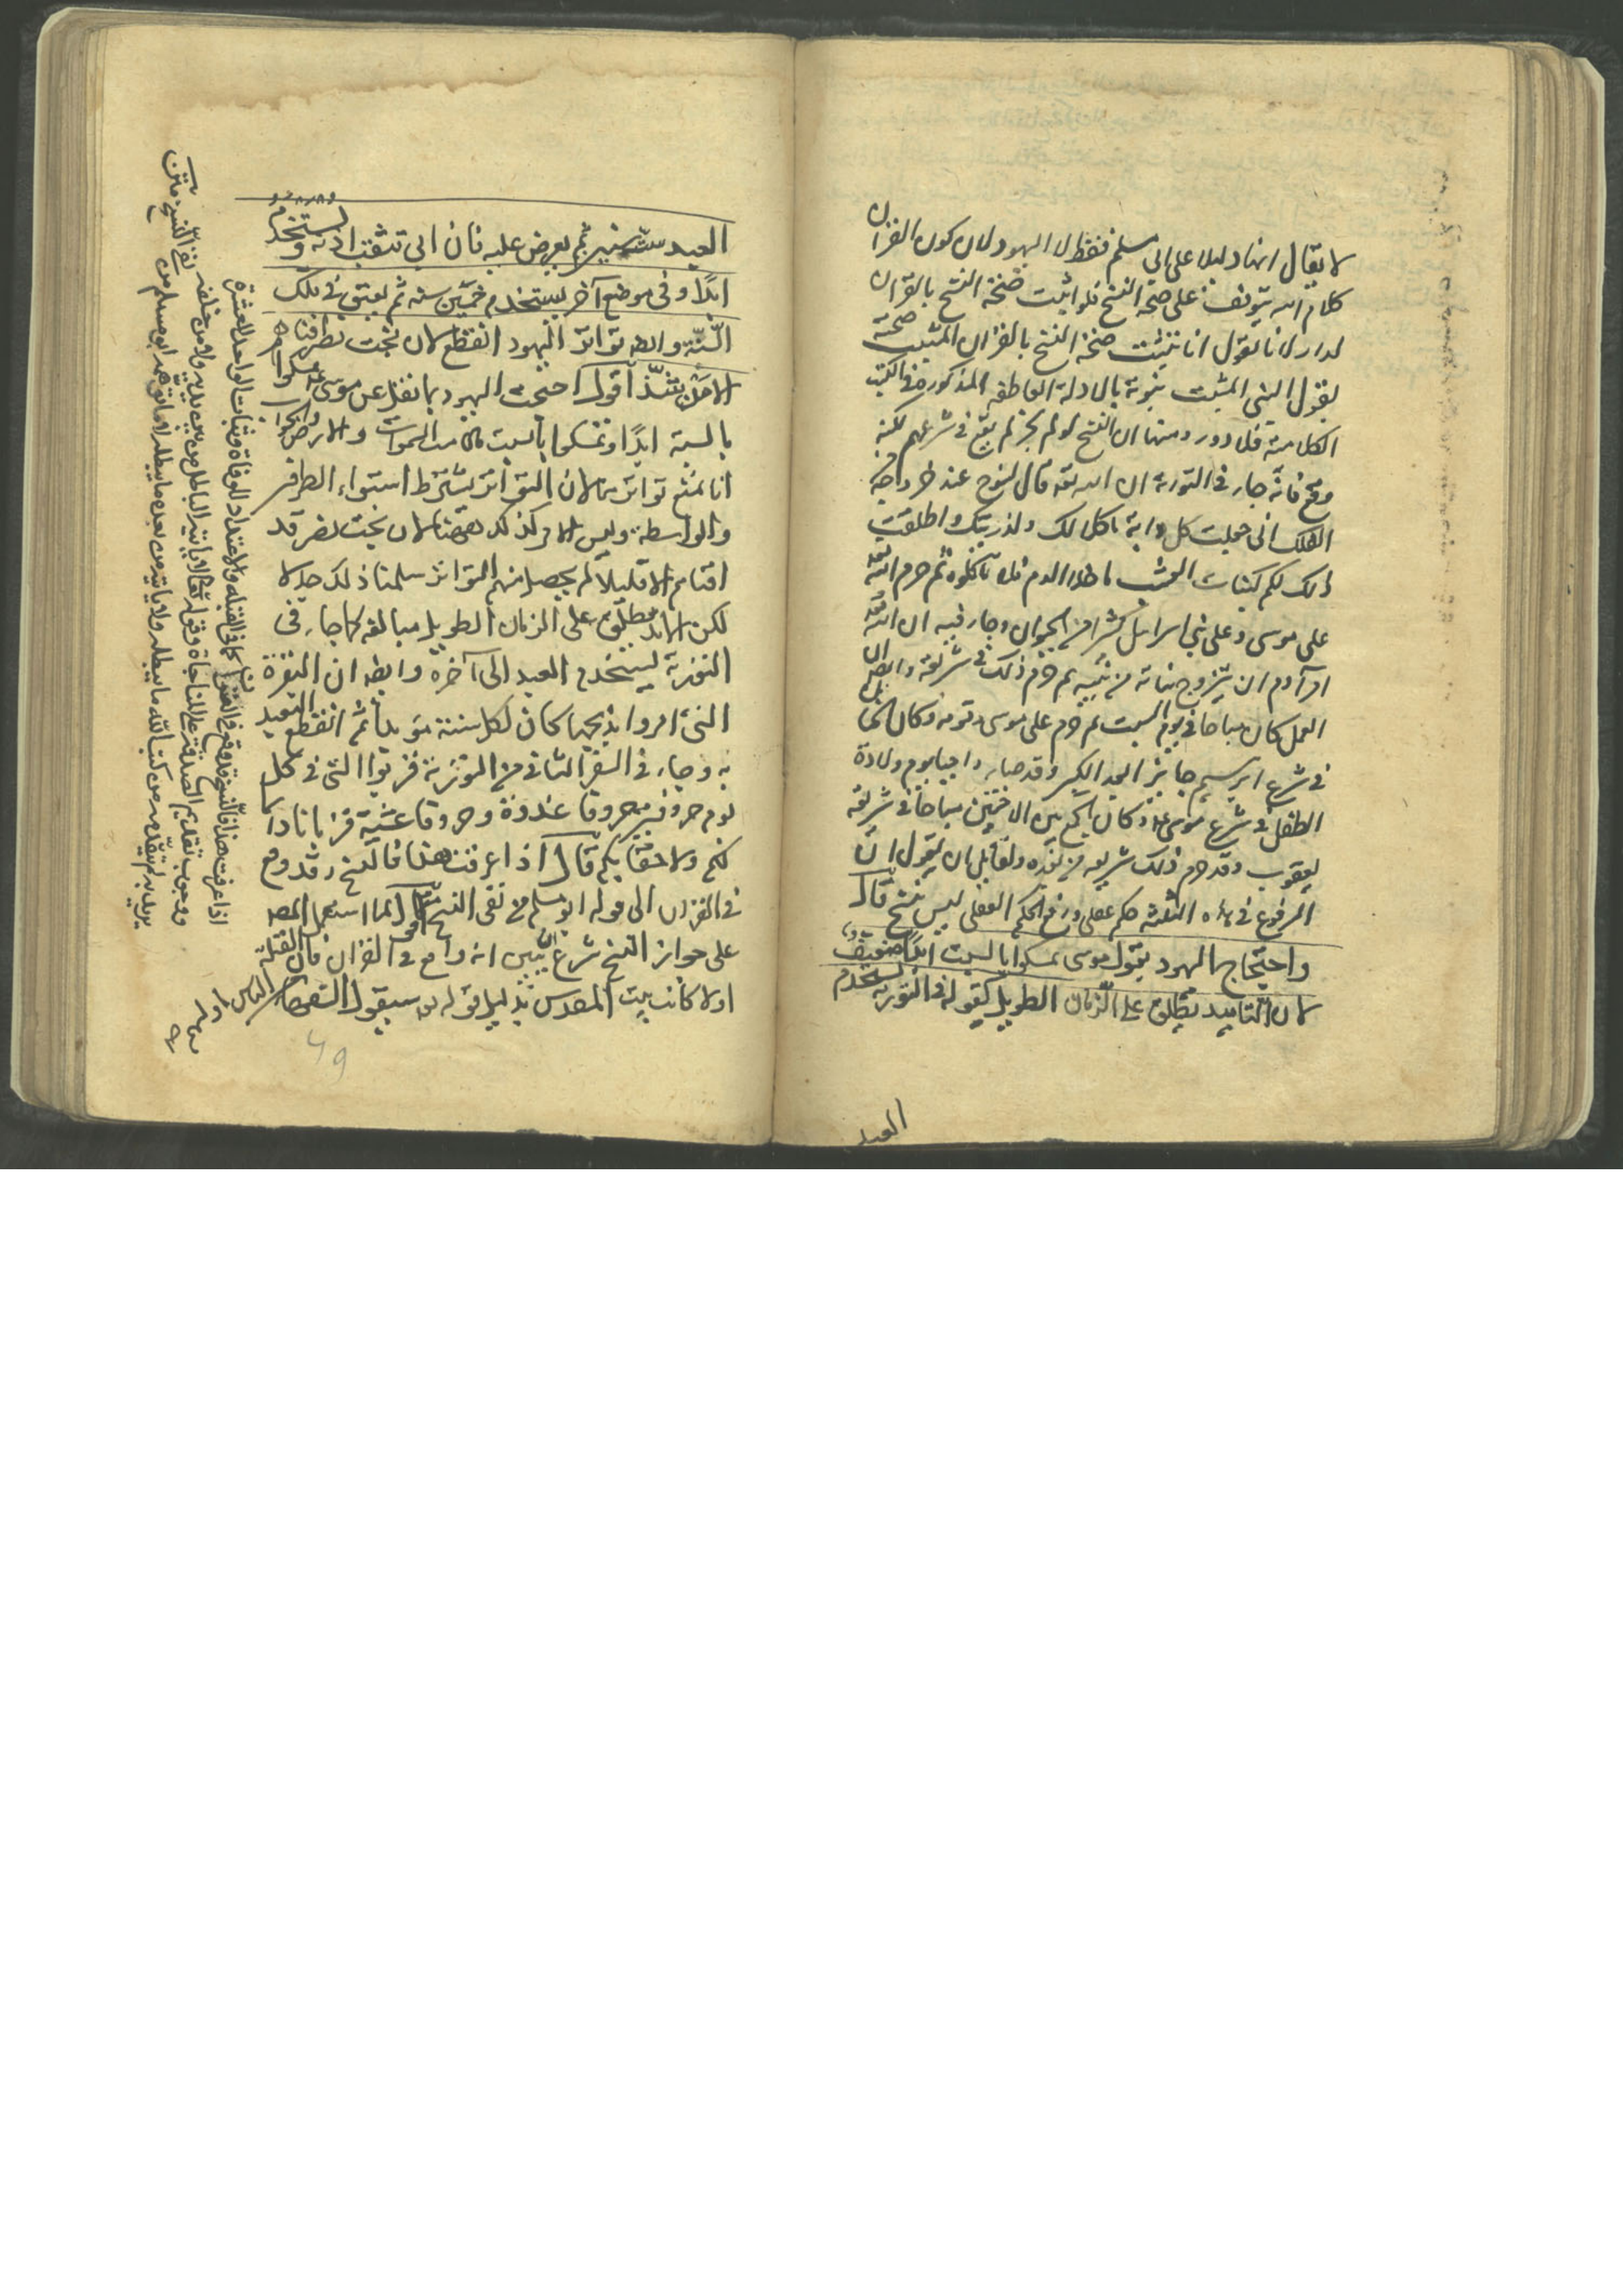 لا يقال انها دليلا على ابي مسلم فقط لا اليهود لان كون القران
كلام الله يتوقف على صحة النسخ فلو اثبت صحة النسخ بالقران
لدار لانا نقول انا نثبت صحة النسخ بالقران المثبت صحته
بقول النبي المثبت نبوته بالادلة القاطعة المذكورة في الكتب
الكلامية فلا دور ومنها ان النسخ لو لم يجز لم يقع في شرعهم لكنه
وقع فانه جاء في التورية ان الله تعه قال لنوح عند خروجه
الفلك اني جعلت كل دابة ماكلا لك ولذريتك واطلقت
ذلك لكم كنبات العشب ما خلا الدم فلا تاكلوه ثم حرم الله تعه
على موسى وعلى بني اسرائيل كثيرا من الحيوان وجاء فيه ان الله تعه
امر آدم ان يزوج بناته من بنيه ثم حرم ذلك في شريعة وايضا ان
العمل كان مباحا في يوم السبت ثم حرم على موسى وقومه وكان الختان
في شرع ابرهيم جايز ا بعد الكبر وقد صار واجبا يوم ولادة
الطفل في شرع موسى عم وكان الجمع بين الاختين مباحا في شريعة
يعقوب وقد حرم ذلك شريعة من بعده ولقائل ان يقول ان
المرفوع في هذه الثلثة حكم عقلي ورفع الحكم العقلي ليس بنسخ قال
واحتجاج اليهود بقول موسى تمسكوا بالسبت ابدا ضعيف
لان التابيد يطلق على الزمان الطويل كقوله في التورية يستخدم
العبد
العبد ست سنين ثم يعرض عليه فان ابى تثقب اذنه ويستخدم
ابدا وفي موضع آخر يستخدم خمسين سنه ثم يعتق في تلك
السنة وايضا تواتر اليهود انقطع لان بخت نصر افناهم
الا من شذ اقول احتجت اليهود بما نقل عن موسى عم تمسكوا
بالسبت ابدا وتمسكوا بالسبت ما دامت السموات والارض والجواب
انا نمنع تواتره لان التواتر يشترط استواء الطرفين
والواسطة وليس الامر كذلك ههنا لان بخت نصر قد
افناهم الا قليلا لم يحصل منهم التواتر سلمنا ذلك جدلا
لكن الابد يطلق على الزمان الطويل مبالغة كما جاء في
التورية يستخدم العبد الى آخره وايضا ان البقرة
التي امروا بذبحها كان لكل سنة مؤبدا ثم انقطع التعبد
به وجاء في السفر الثاني من التورية قربوا الي في كل
يوم خروفين خروفا غدوة وخروفا عشية قربانا دائما
لكم ولاحقابكم قال اذا عرفت هذا فالنسخ قد وقع
في القران الى قوله ابو مسلم من نفى النسخ اقول لما استعمل المصنف
على جواز النسخ شرع يبين انه واقع في القران فان القبلة
اولا كانت بيت المقدس بدليل قوله تعه سيقول السفهاء من الناس ما وليهم
اذا عرفت هذا فالنسخ قد وقع في القران كما في القبلة والاعتداد للوفاة وثبات الواحد للعشرة
ووجوب تقديم الصدقة على المناجاة وقوله تعالى لا ياتيه الباطل من بين يديه ولا من خلفه
يريد به لم يتقدمه من كتب الله ما يبطله ولا ياتي من بعده ما يبطله
٤٩